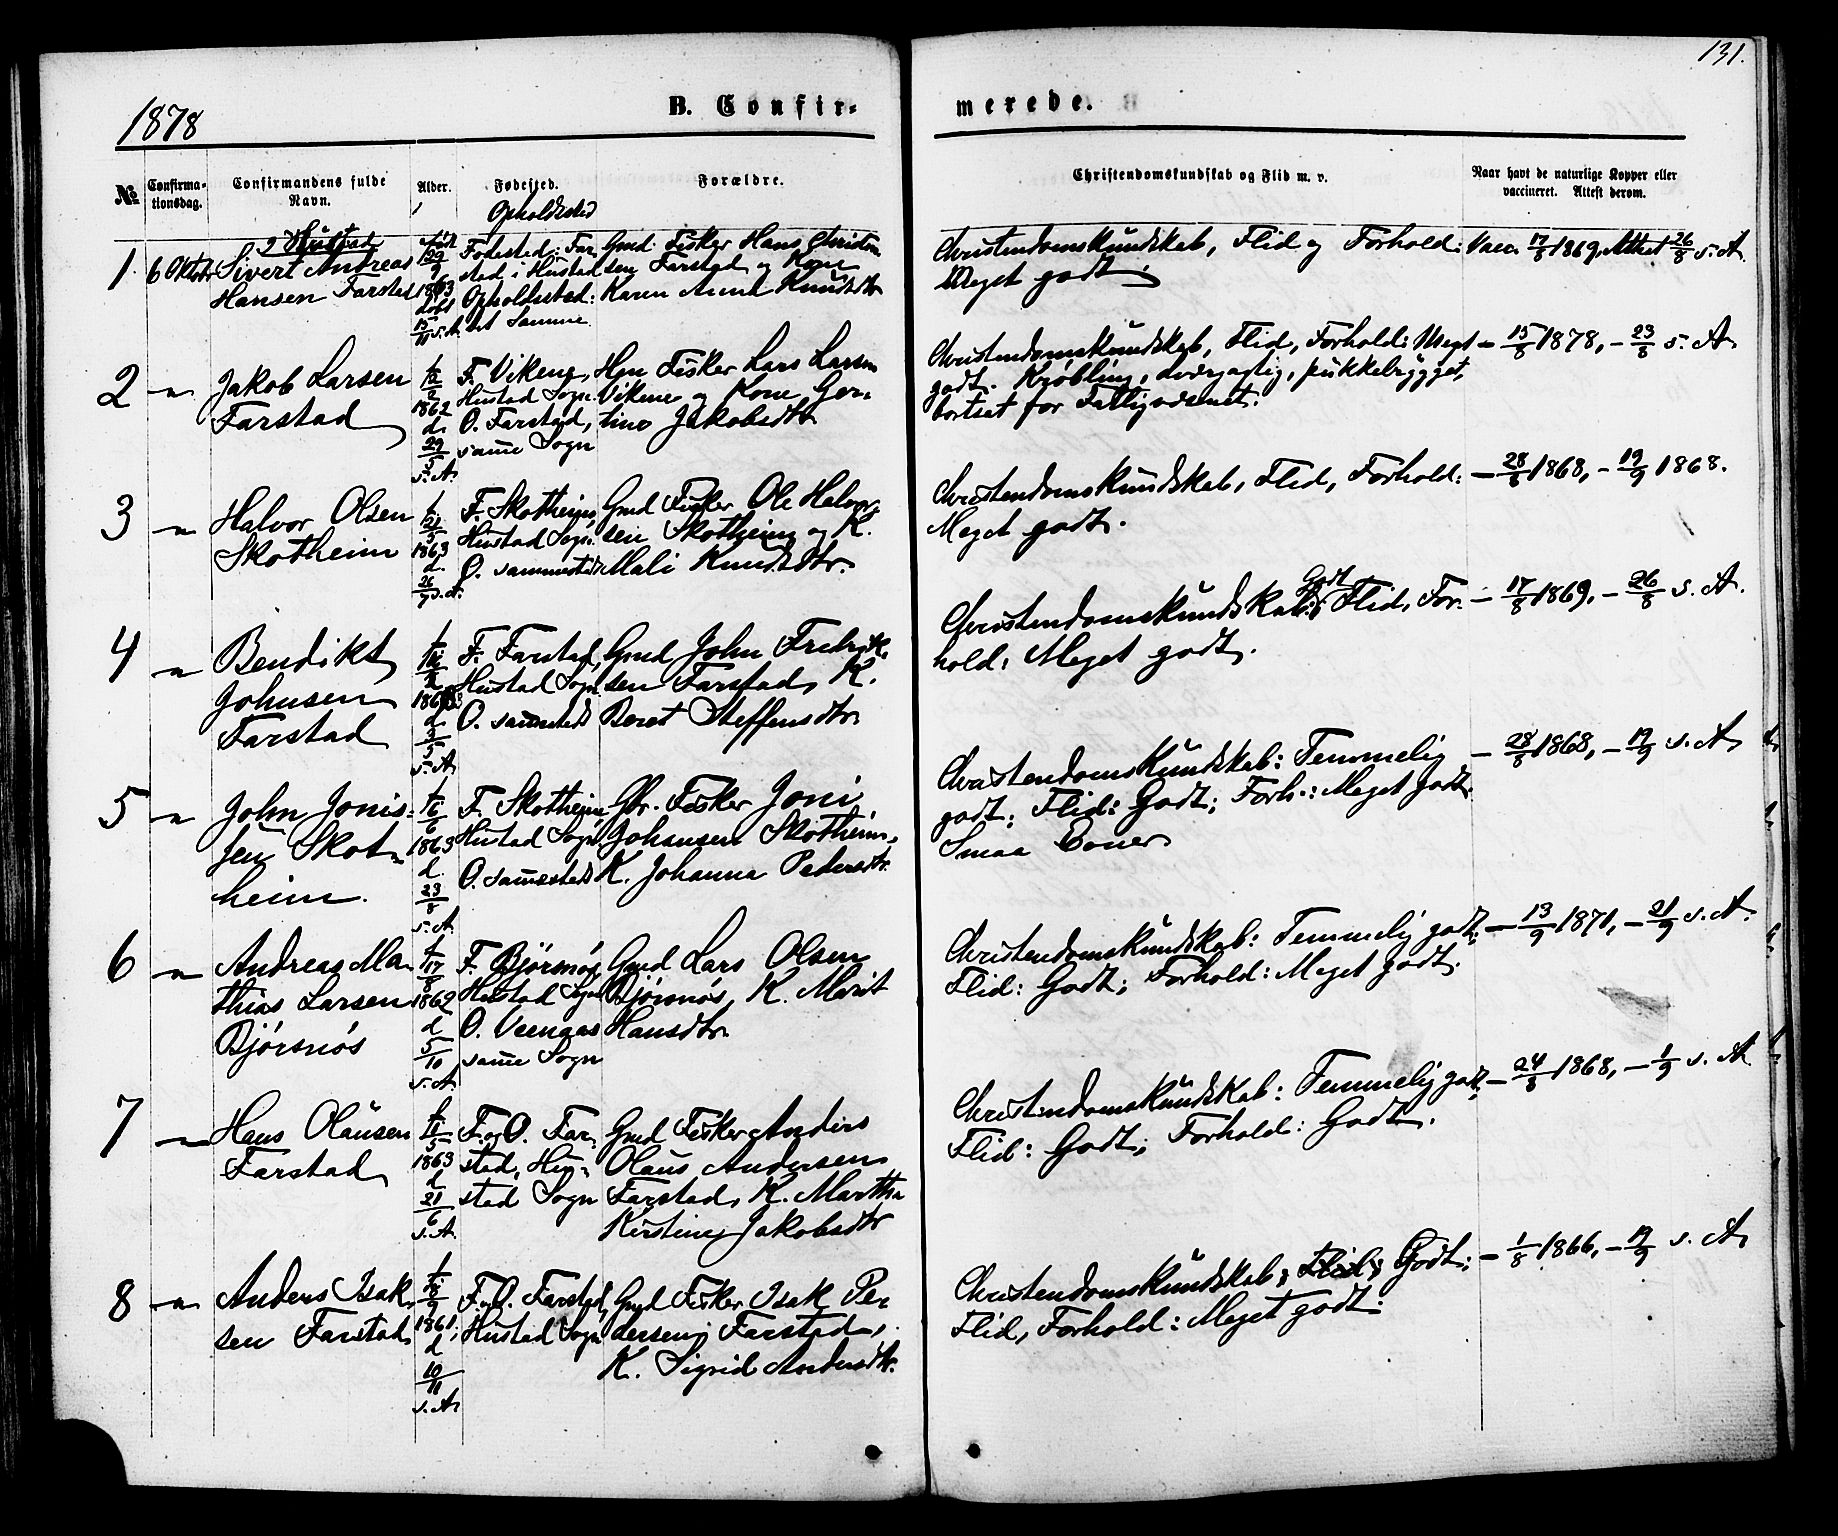 131.
1878
B. Confir-
merede.
№
Confirma-
tionsdag.
Confirmandens fulde
Navn.
Alder.
Fødested.
Opholdssted
Forældre.
Christendomskundskab og Flid m. v.
Naar havt de naturlige Kopper eller
vaccineret. Attest derom.
i Hustad
1. 6 Oktbr
Sivert Andreas
Hansen Farstad
født
29/9
1863
døbt
15/11 s. A.
Fødested: Far
stad i Hustad
Opholdssted:
det Samme.
Gmd. Fisker Hans Christen
sen Farstad og Kone
Karen Anna Knudsdtr
Christendomskundskab, Flid og Forhold:
Meget godt.
Vacc. 17/8 1869, Attest 26/8 s. A.
2 -"-
Jakob Larsen
Farstad
f.
1862
d.
29/5
s. A.
F. Vikene,
Hustad Sogn.
O. Farstad,
samme Sogn
Hmd Fisker Lars Larsen
Vikene og Kone Ger-
tine Jakobsdtr
Christendomskundskab, Flid, Forhold: Meget
godt. Krøbling, dværgagtig, pukkelrygget,
bortsat for Fattigvæsenet.
- 15/8 1878, - 23/8 s. A.
3 -"-
Halvor Olsen
Skotheim
f.
21/5
1863
d.
26/7 s. A.
F. Skotheim,
Hustad Sogn.
O. sammesteds
Gmd Fisker Ole Halvor-
sen Skotheim og K.
Mali Knudsdtr.
Christendomskundskab, Flid, Forhold:
Meget godt.
- 28/8 1868, - 19/9 1868.
4 -"-
Bendikt
Johnsen
Farstad
f.
d.
3/5
s. A.
F. Farstad,
Hustad Sogn
O. sammesteds
Gmd John Fredrik-
sen Farstad, K.
Beret Steffensdtr
Christendomskundskab: Godt Flid, For-
hold: Meget godt.
- 17/8 1869, - 26/8 s. A.
5 -"-
John Jonis-
sen Skot-
heim.
f.
11/6
1863
d.
23/8
s. A.
F. Skotheim,
Hustad Sogn
O. sammesteds
Gbr. Fisker Joni
Johansen Skotheim,
K. Johanna Pedersdtr.
Christendomskundskab: Temmelig
godt; Flid: Godt; Forh.: Meget godt.
Smaa Evner
- 28/8 1868, - 19/9 s. A.
6 -"-
Andreas Ma
thias Larsen
Bjørsnøs
f.
17/8
1862
d.
5/10
s. A.
F. Bjørsnøs,
Hustad Sogn
O. Veengas
samme Sogn
Gmd Lars Olsen
Bjørsnøs, K. Marit
Hansdtr.
Christendomskundskab: Temmelig godt;
Flid: Godt; Forhold: Meget godt.
- 13/9 1871, - 21/9 s. A.
7 -"-
Hans Olausen
Farstad
f.
11/5
1863
d.
21/6
s. A.
F. og O. Far-
stad, Hu-
stad Sogn
Gmd Fisker Anders
Olaus Andersen
Farstad, K. Martha
Kirstine Jakobsdtr
Christendomskundskab: Temmelig godt;
Flid: Godt; Forhold: Godt.
- 24/8 1868, - 1/9 s. A.
8 -"-
Anders Isak
sen Farstad
f.
1861,
d.
10/11
s. A.
F. O. Farstad,
Hustad Sogn
Gmd Fisker Isak Pe-
dersen Farstad,
K. Sigrid Andersdtr.
Christendomskundskab; Flid; Godt;
Flid, Forhold: Meget godt.
- 1/8 1866, - 19/9 s. A.